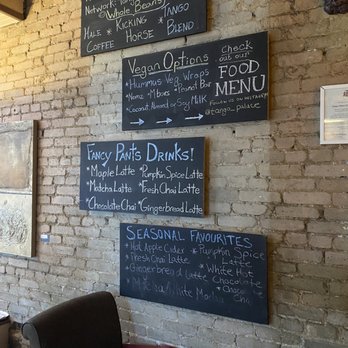 Whole Beans
Hale * Kicking * Tango
Coffee Horse Blend
Vegan Options
* Hummus Veg Wraps
* Peanut Bar
Coconut, Almond or Soy Milk
Check
out our
FOOD
MENU
Follow us on Instagram
@tango_palace
Fancy Pants Drinks!
* Maple Latte * Pumpkin Spice Latte
* Matcha Latte * Fresh Chai Latte
* Chocolate Chai * Gingerbread Latte
Seasonal Favourites
* Hot Apple Cider * Pumpkin Spice
Latte
* Fresh Chai Latte * White Hot
Chocolate
* Gingerbread Latte